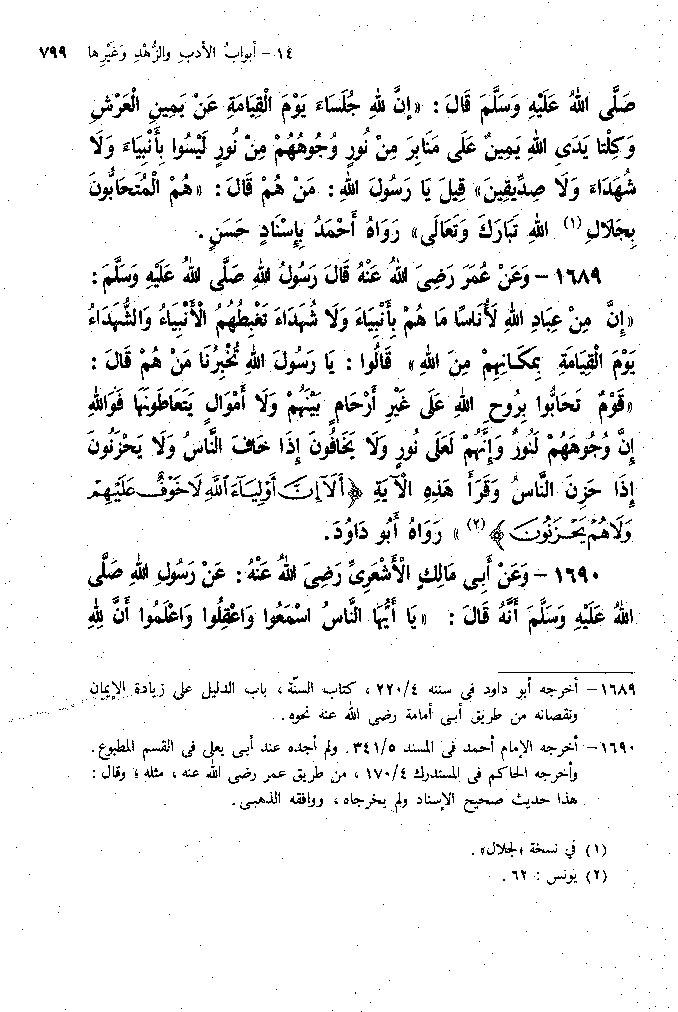 ١٤ - أبوابُ الأدبِ والزُّهْدِ وَغَيْرِها ٧٩٩
صَلَّى اللهُ عَلَيْهِ وَسَلَّمَ قَالَ : «إنَّ للهِ جُلَسَاءَ يَوْمَ الْقِيَامَةِ عَنْ يَمِينِ الْعَرْشِ
وَكِلْتا يَدَىِ اللهِ يَمِينٌ عَلَى مَنَابِرَ مِنْ نُورٍ وُجُوهُهُمْ مِنْ نُورٍ لَيْسُوا بِأَنْبِيَاءَ وَلَا
شُهَدَاءَ وَلَا صِدِّيقِينَ» قِيلَ يَا رَسُولَ اللهِ : مَنْ هُمْ قَالَ : «هُمْ الْمُتَحَابُّونَ
بِجَلَالِ (١) اللهِ تَبَارَكَ وَتَعَالَى» رَوَاهُ أَحْمَدُ بِإِسْنَادٍ حَسَنٍ .
١٦٨٩ - وَعَنْ عُمَرَ رَضِىَ اللهُ عَنْهُ قَالَ رَسُولُ اللهِ صَلَّى اللهُ عَلَيْهِ وَسَلَّمَ :
«إِنَّ مِنْ عِبَادِ اللهِ لَأُنَاسًا مَا هُمْ بِأَنْبِيَاءَ وَلَا شُهَدَاءَ تَغْبِطُهُمُ الْأَنْبِيَاءُ وَالشُّهَدَاءُ
يَوْمَ الْقِيَامَةِ بِمَكَانِهِمْ مِنَ اللهِ» قَالُوا : يَا رَسُولَ اللهِ تُخْبِرُنَا مَنْ هُمْ قَالَ :
«قَوْمٌ تَحَابُّوا بِرُوحِ اللهِ عَلَى غَيْرِ أَرْحَامٍ بَيْنَهُمْ وَلَا أَمْوَالٍ يَتَعَاطَوْنَهَا فَوَاللهِ
إِنَّ وُجُوهَهُمْ لَنُورٌ وَإِنَّهُمْ لَعَلَى نُورٍ وَلَا يَخَافُونَ إِذَا خَافَ النَّاسُ وَلَا يَحْزَنُونَ
إِذَا حَزِنَ النَّاسُ وَقَرَأَ هَذِهِ الْآيَةِ ﴿أَلَآ إِنَّ أَوْلِيَآءَ ٱللَّهِ لَا خَوْفٌ عَلَيْهِمْ
وَلَا هُمْ يَحْزَنُونَ﴾ (٢) » رَوَاهُ أَبُو دَاوُدَ.
١٦٩٠ - وَعَنْ أَبِى مَالِكٍ الْأَشْعَرِىِّ رَضِىَ اللهُ عَنْهُ : عَنْ رَسُولِ اللهِ صَلَّى
اللهُ عَلَيْهِ وَسَلَّمَ أَنَّهُ قَالَ : «يَا أَيُّهَا النَّاسُ اسْمَعُوا وَاعْقِلُوا وَاعْلَمُوا أَنَّ لِلهِ
١٦٨٩ - أخرجه أبو داود فى سننه ٢٢٠/٤ ، كتاب السنّة ، باب الدليل على زيادة الإيمان
ونقصانه من طريق أبى أمامة رضى الله عنه نحوه.
١٦٩٠ - أخرجه الإمام أحمد فى المسند ٣٤١/٥. ولم أجده عند أبى يعلى فى القسم المطبوع.
وأخرجه الحاكم فى المستدرك ١٧٠/٤ ، من طريق عمر رضى الله عنه ، مثله ؛ وقال :
هذا حديث صحيح الإسناد ولم يخرجاه ، ووافقه الذهبى.
(١) في نسخة «لجلال» .
(٢) يونس : ٦٢ .